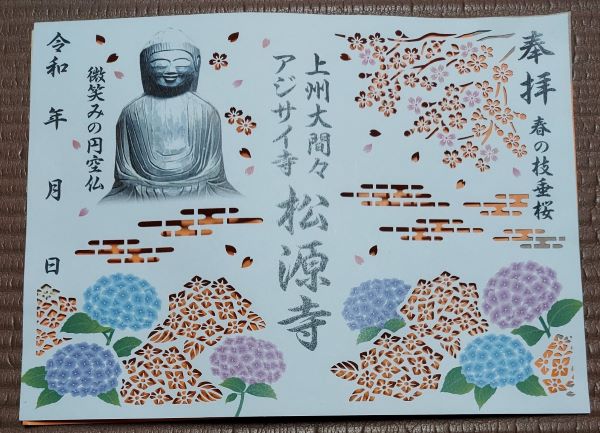 奉拝
春の枝垂桜
上州大間々
アジサイ寺
松源寺
微笑みの円空仏
令和 年 月 日